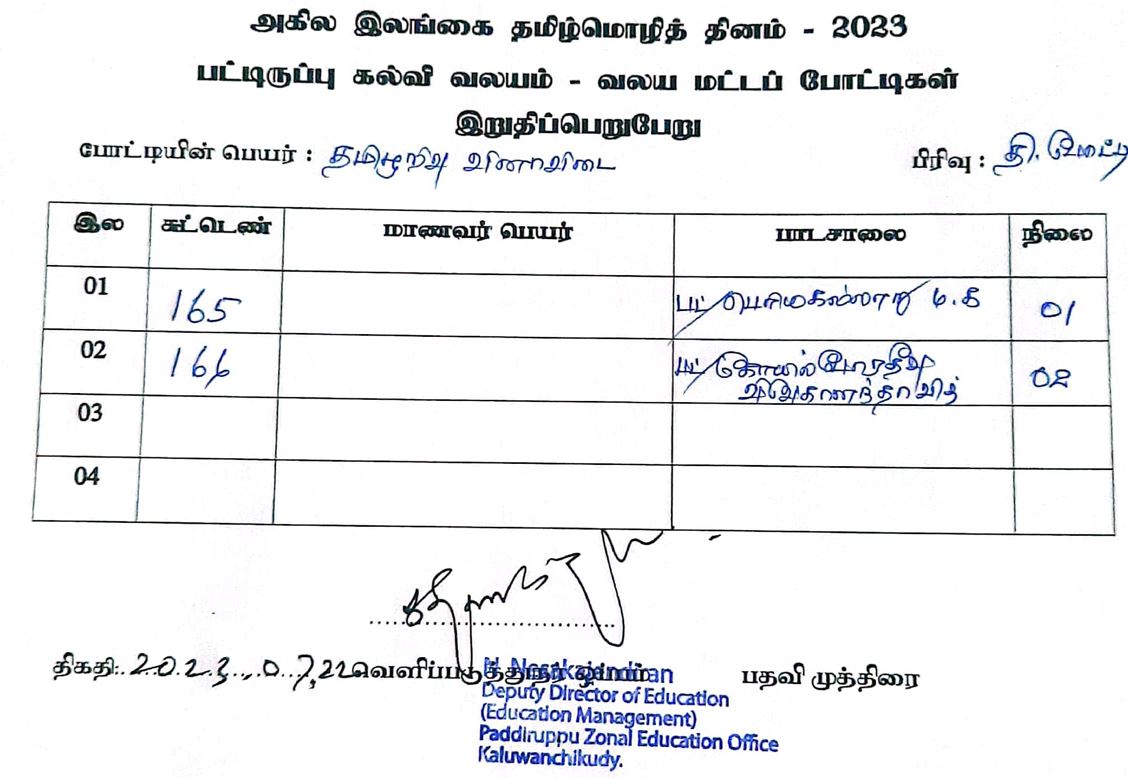 அகில இலங்கை தமிழ்மொழித் தினம் - 2023
பட்டிருப்பு கல்வி வலயம் - வலய மட்டப் போட்டிகள்
இறுதிப்பெறுபேறு
போட்டியின் பெயர் : தமிழறிவு வினாவிடை பிரிவு : தி. போட்டி
இல சுட்டெண் மாணவர் பெயர் பாடசாலை நிலை
01 165 பட்/ பெரியகல்லாறு ம.க 01
02 166 பட்/ கோயில்போரதீவு விவேகானந்தா வித் 02
03
04
திகதி: 2023.07.22 வெளிப்படுத்துநர் ஒப்பம் பதவி முத்திரை
Deputy Director of Education
(Education Management)
Paddiruppu Zonal Education Office
Kaluwanchikudy.